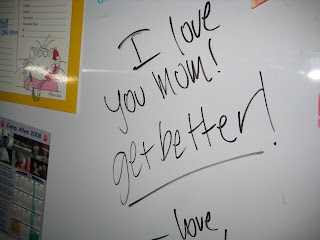 I love
you mom!
get better!
- love,
Camp Allen 2008